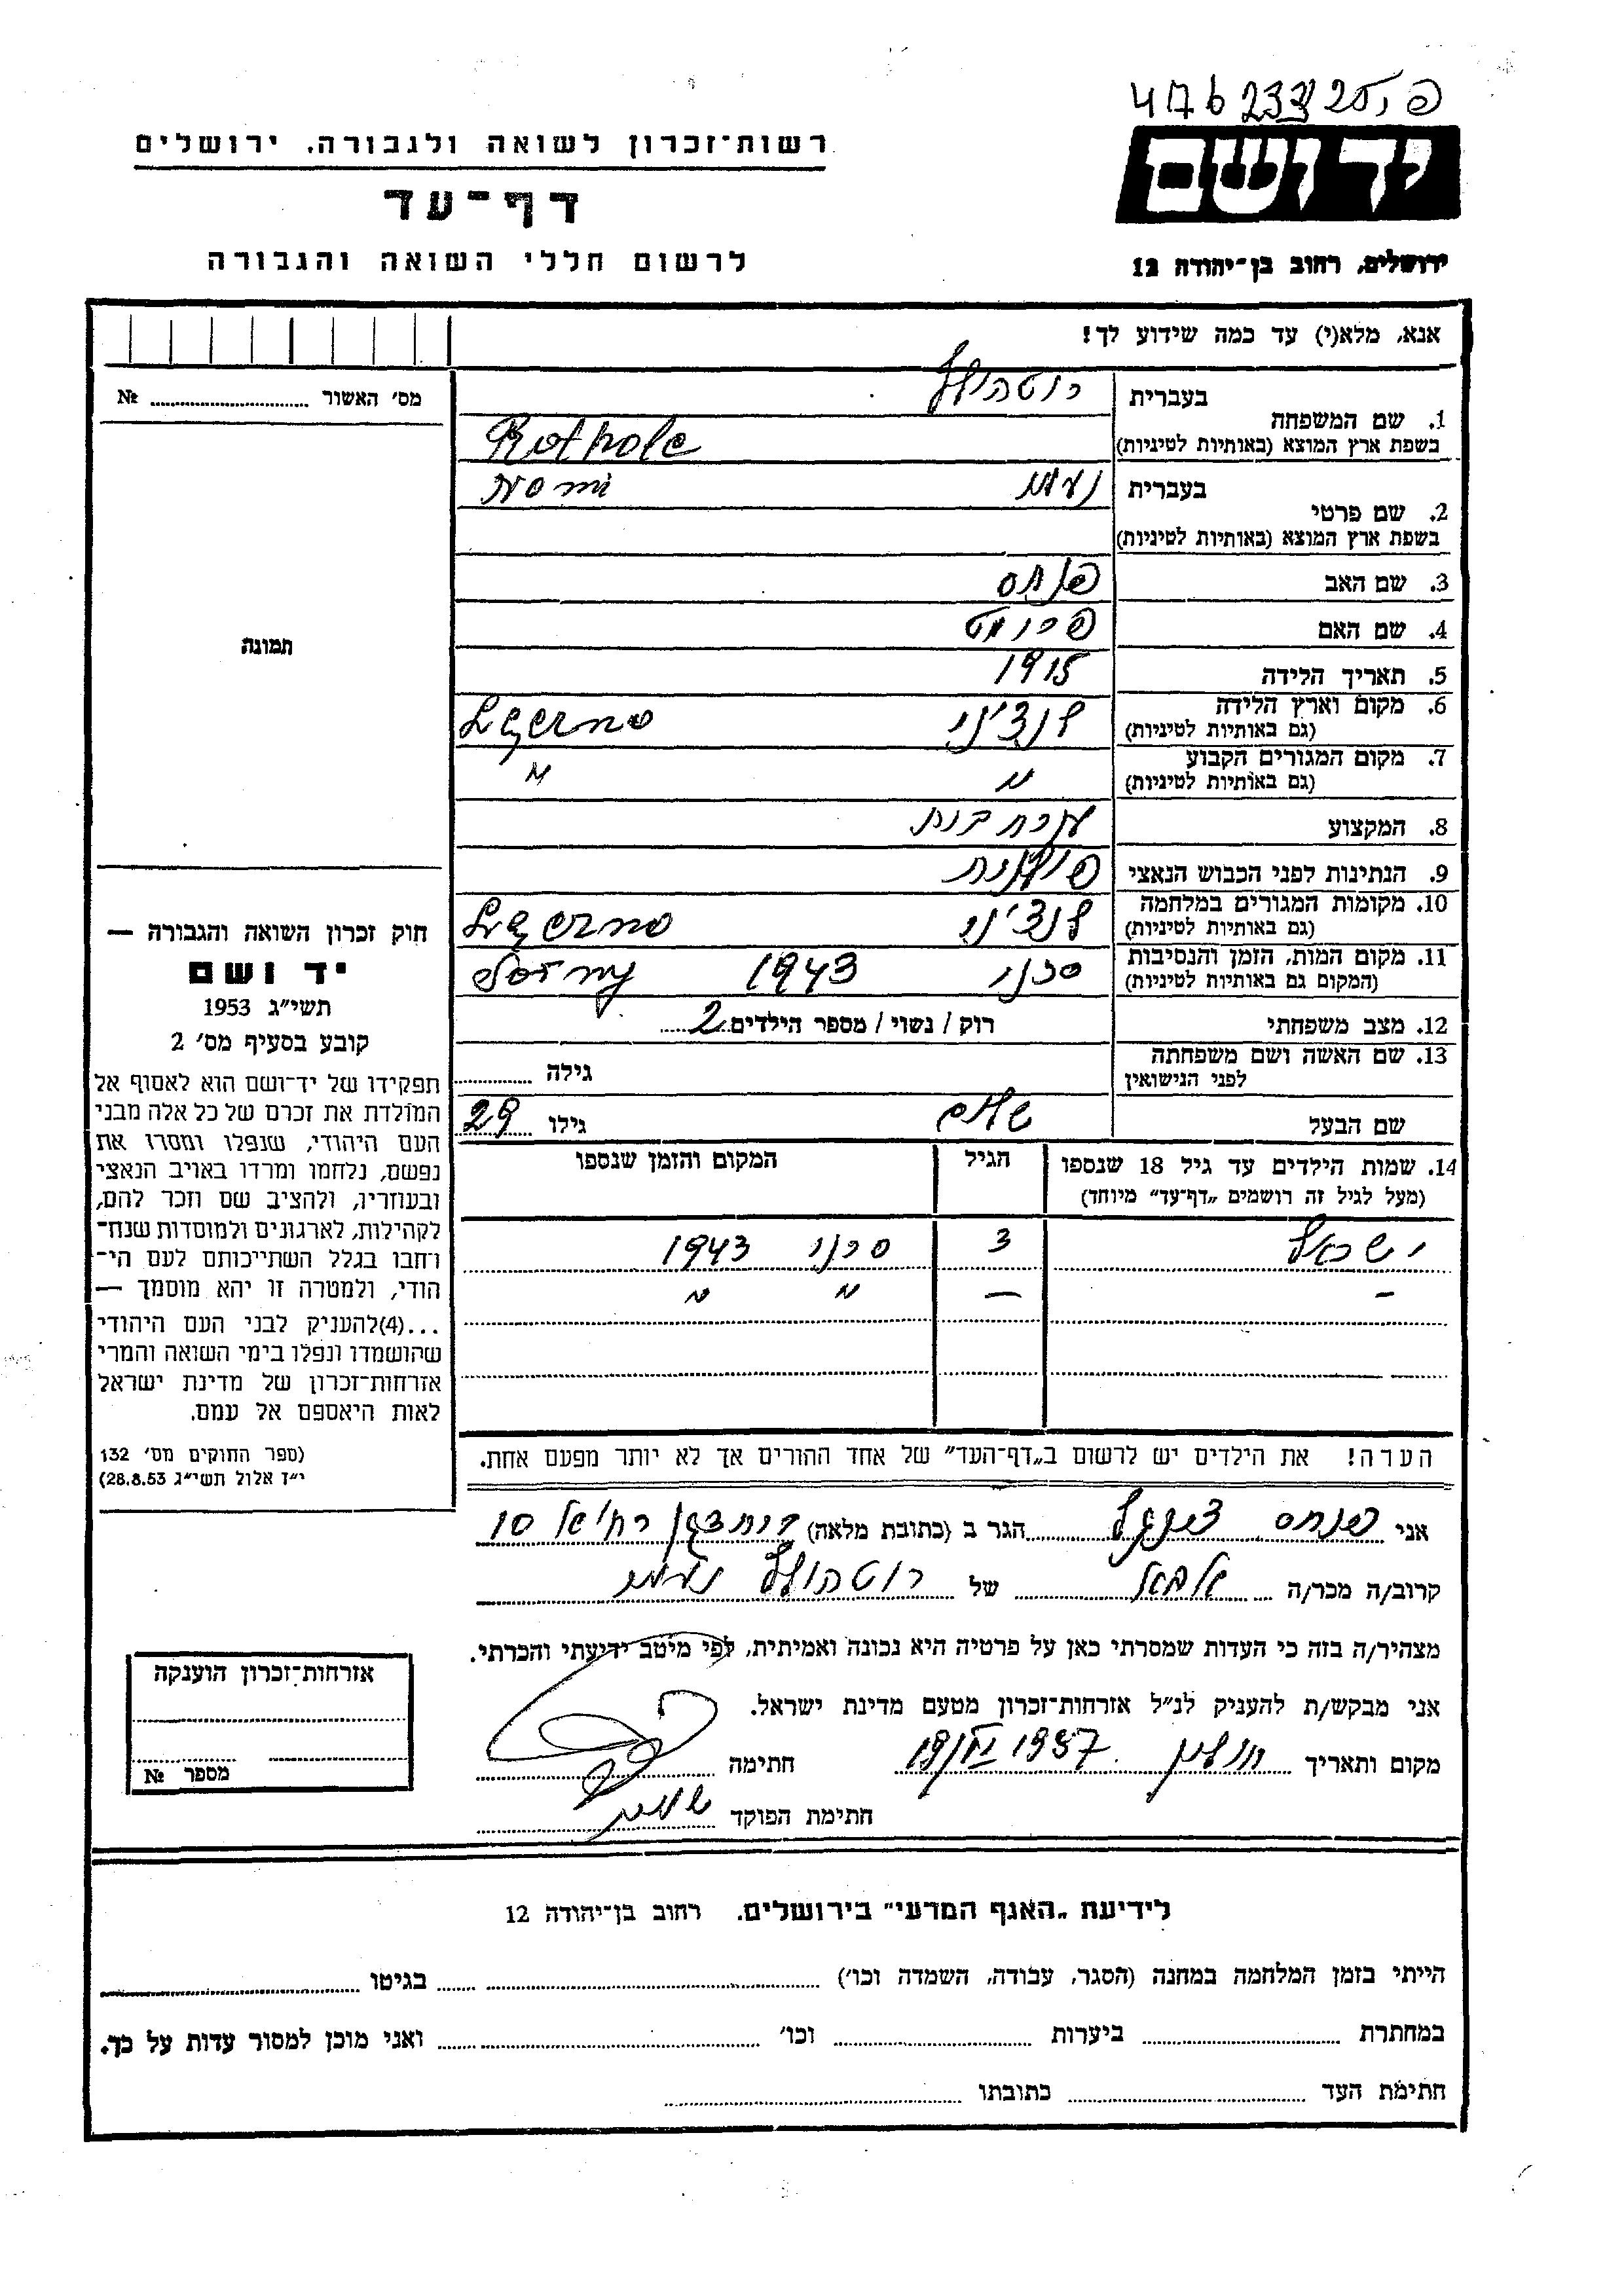 רשות־זכרון לשואה ולגבורה, ירושלים
דף־עד
לרשום חללי השואה והגבורה
ידושם
ירושלים, רחוב בן־יהודה 12
אנא, מלא(י) עד כמה שידוע לך!
מס׳ האשור ........ №
1. שם המשפחה
בעברית
רוטהולץ
בשפת ארץ המוצא (באותיות לטיניות)
Rothole
2. שם פרטי
בעברית
נעמי Nomi
בשפת ארץ המוצא (באותיות לטיניות)
3. שם האב פנחס
4. שם האם פרומט
5. תאריך הלידה 1915
6. מקום וארץ הלידה
(גם באותיות לטיניות)
7. מקום המגורים הקבוע
(גם באותיות לטיניות)
״ ״
8. המקצוע עקרת בית
9. הנתינות לפני הכבוש הנאצי פולנית
10. מקומות המגורים במלחמה
(גם באותיות לטיניות)
11. מקום המות, הזמן והנסיבות
(המקום גם באותיות לטיניות)
סרני 1943 Sorny
12. מצב משפחתי רוק / נשוי / מספר הילדים 2
13. שם האשה ושם משפחתה
לפני הנישואין
גילה
שם הבעל שלום גילו 29
14. שמות הילדים עד גיל 18 שנספו
(מעל לגיל זה רושמים „דף־עד״ מיוחד)
הגיל
המקום והזמן שנספו
ישראל 3 סרני 1943
– – ״ ״
הערה! את הילדים יש לרשום ב„דף־העד״ של אחד ההורים אך לא יותר מפעם אחת.
תמונה
חוק זכרון השואה והגבורה —
יד ושם
תשי״ג 1953
קובע בסעיף מס׳ 2
תפקידו של יד־ושם הוא לאסוף אל
המולדת את זכרם של כל אלה מבני
העם היהודי, שנפלו ומסרו את
נפשם, נלחמו ומרדו באויב הנאצי
ובעוזריו, ולהציב שם וזכר להם,
לקהילות, לארגונים ולמוסדות שנח־
רחבו בגלל השתייכותם לעם הי־
הודי, ולמטרה זו יהא מוסמך —
...(4)להעניק לבני העם היהודי
שהושמדו ונפלו בימי השואה והמרי
אזרחות־זכרון של מדינת ישראל
לאות היאספם אל עמם.
(ספר החוקים מס׳ 132
י״ז אלול תשי״ג 28.8.53)
אני פנחס הגר ב (כתובת מלאה) 10
קרוב/ה מכר/ה של רוטהולץ נעמי
מצהיר/ה בזה כי העדות שמסרתי כאן על פרטיה היא נכונה ואמיתית, לפי מיטב ידיעתי והכרתי.
אני מבקש/ת להעניק לנ״ל אזרחות־זכרון מטעם מדינת ישראל.
מקום ותאריך חולון 19/VI 1957 חתימה
חתימת הפוקד
אזרחות־זכרון הוענקה
מספר №
לידיעת „האגף המדעי״ בירושלים, רחוב בן־יהודה 12
הייתי בזמן המלחמה במחנה (הסגר, עבודה, השמדה וכו׳) בגיטו
במחתרת ביערות וכו׳ ואני מוכן למסור עדות על כך.
חתימת העד כתובתו